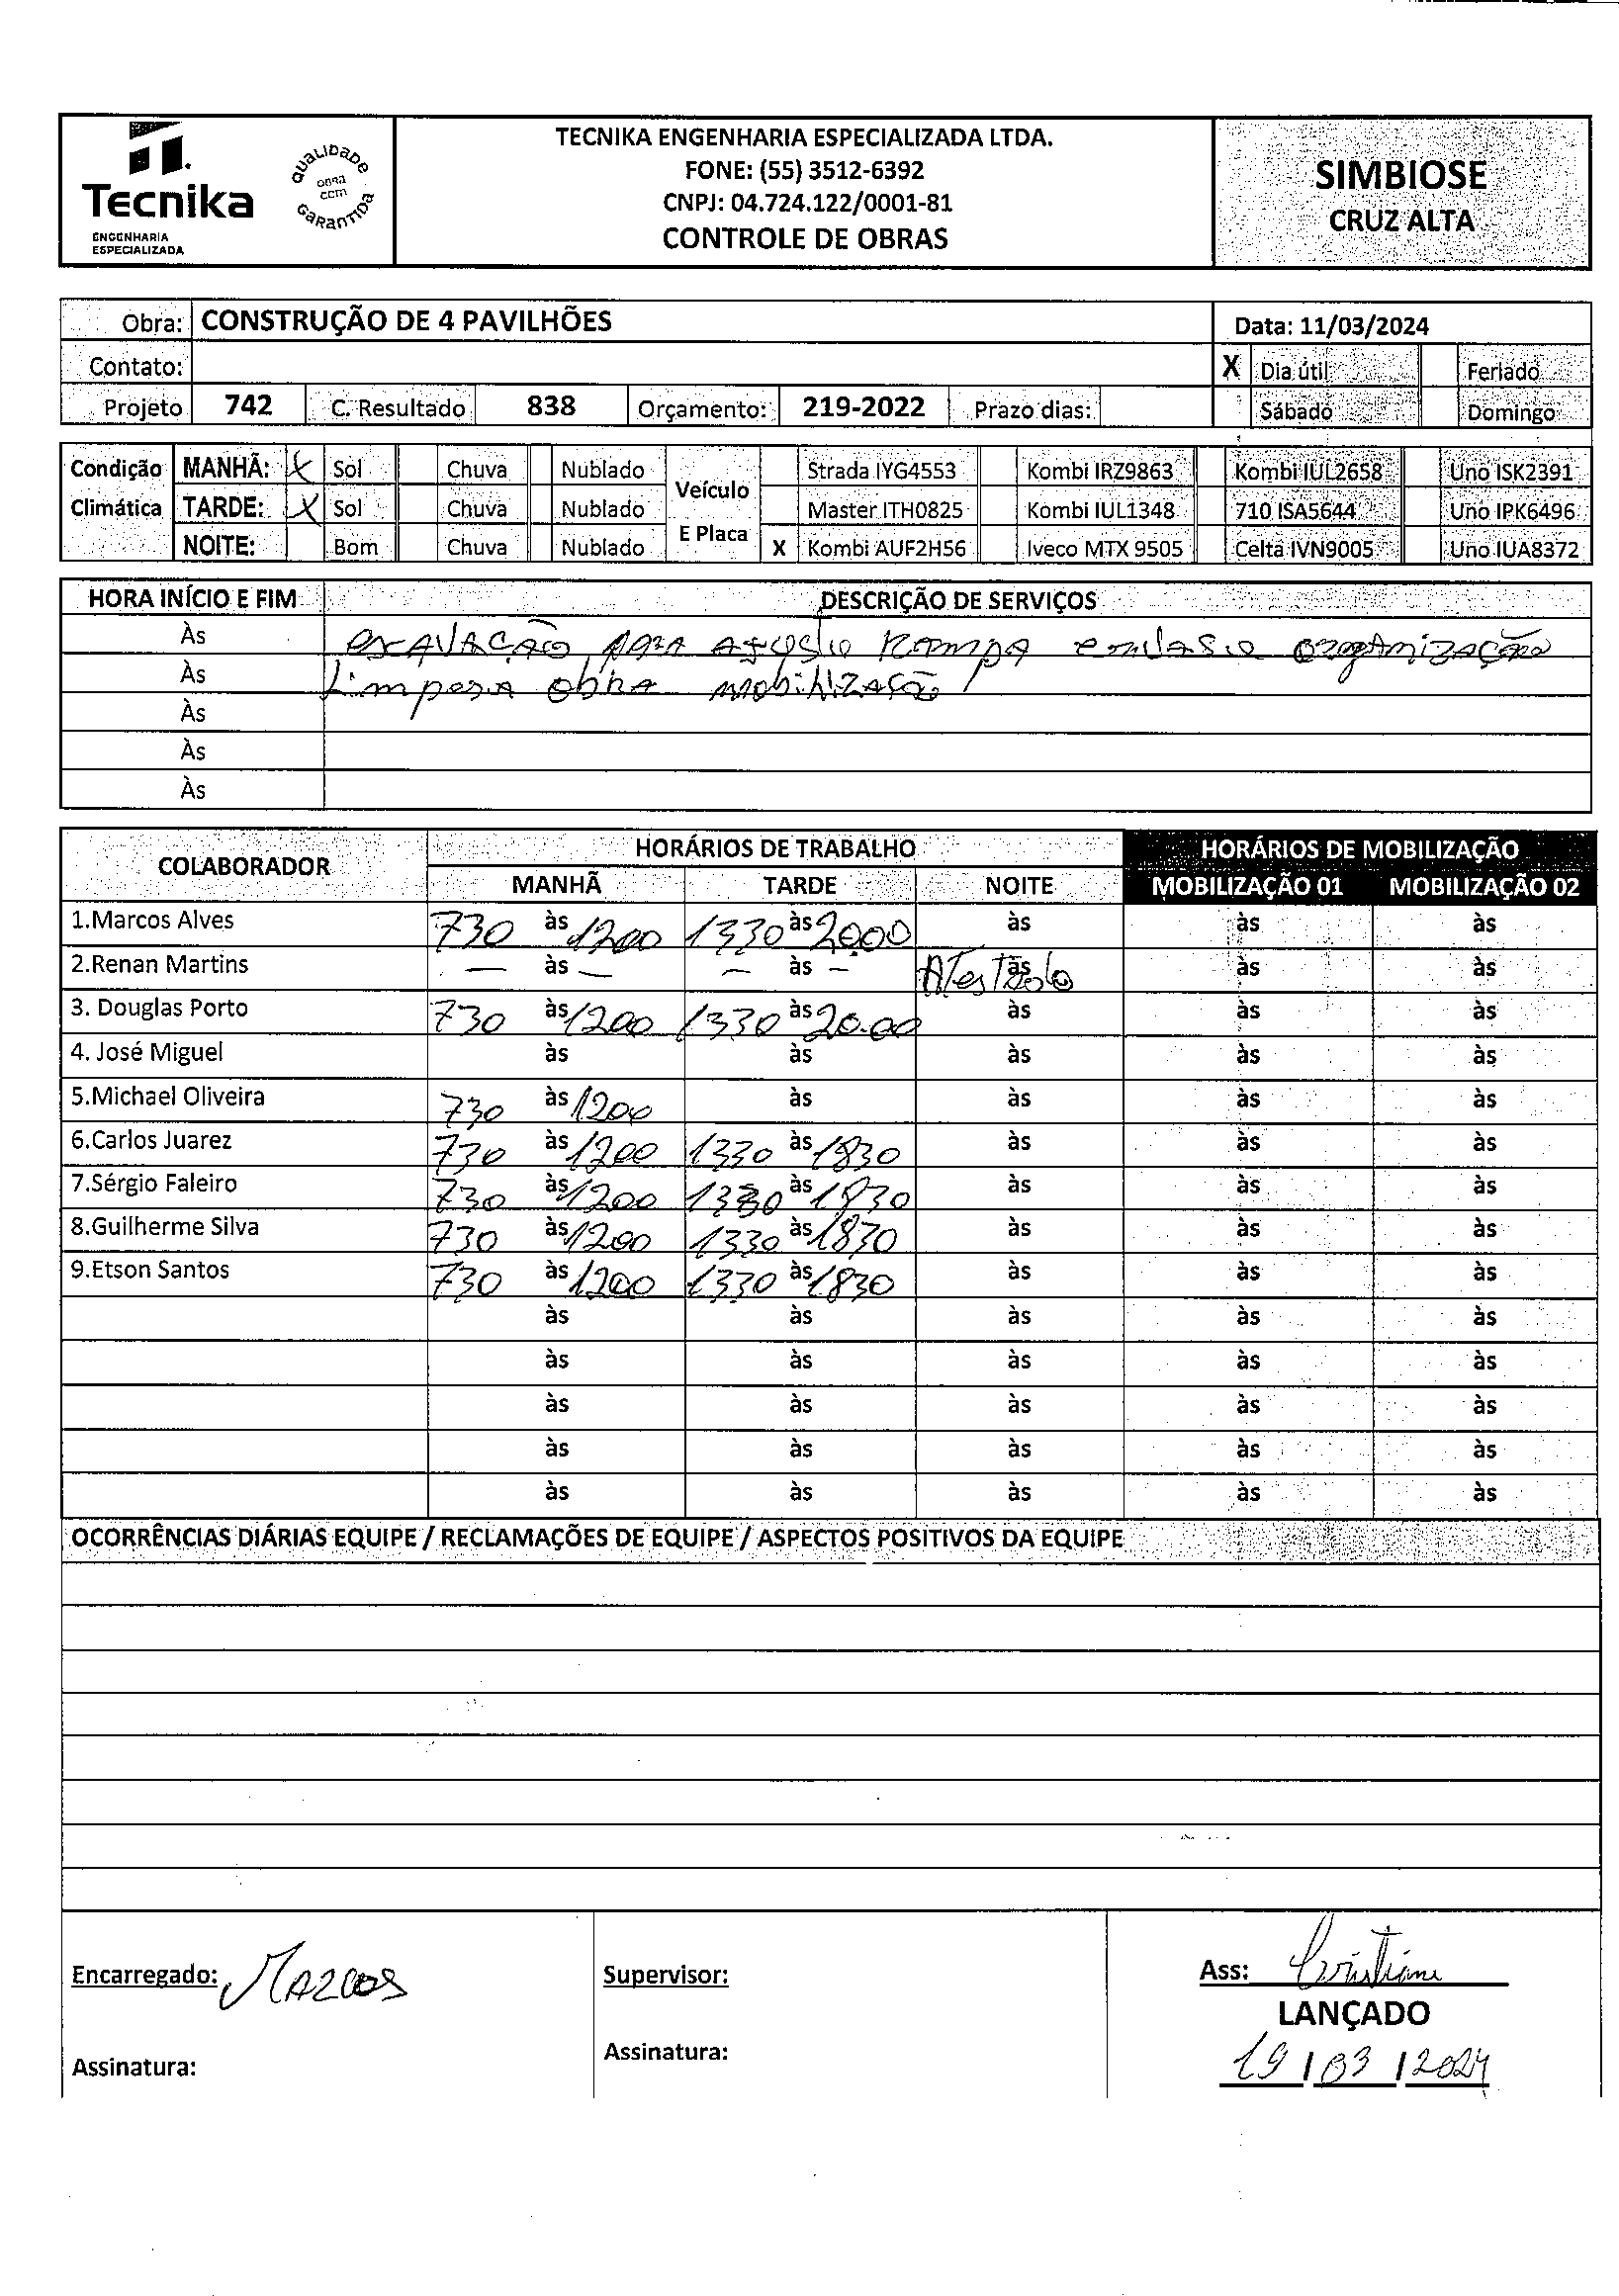 Tecnika
ENGENHARIA
ESPECIALIZADA
QUALIDADE
OBRA
COM
GARANTIDA
TECNIKA ENGENHARIA ESPECIALIZADA LTDA.
FONE: (55) 3512-6392
CNPJ: 04.724.122/0001-81
CONTROLE DE OBRAS
SIMBIOSE
CRUZ ALTA
Obra: CONSTRUÇÃO DE 4 PAVILHÕES Data: 11/03/2024
Contato: X Dia útil Feriado
Projeto 742 C. Resultado 838 Orçamento: 219-2022 Prazo dias: Sábado Domingo
Condição MANHÃ: X Sol Chuva Nublado Veículo Strada IYG4553 Kombi IRZ9863 Kombi IUL2658 Uno ISK2391
Climática TARDE: X Sol Chuva Nublado Master ITH0825 Kombi IUL1348 710 ISA5644 Uno IPK6496
NOITE: Bom Chuva Nublado E Placa X Kombi AUF2H56 Iveco MTX 9505 Celta IVN9005 Uno IUA8372
HORA INÍCIO E FIM DESCRIÇÃO DE SERVIÇOS
Às escavação para Rampa organização
Às Limpesa obra mobilização
Às
Às
Às
COLABORADOR HORÁRIOS DE TRABALHO HORÁRIOS DE MOBILIZAÇÃO
MANHÃ TARDE NOITE MOBILIZAÇÃO 01 MOBILIZAÇÃO 02
1.Marcos Alves 730 às 1200 1330 às 2000 às às às
2.Renan Martins — às — — às — Atestado às às às
3. Douglas Porto 730 às 1200 1330 às 20.00 às às às
4. José Miguel às às às às às
5.Michael Oliveira 730 às 1200 às às às às
6.Carlos Juarez 730 às 1200 1330 às 1830 às às às
7.Sérgio Faleiro 730 às 1200 1330 às 1830 às às às
8.Guilherme Silva 730 às 1200 1330 às 1830 às às às
9.Etson Santos 730 às 1200 1330 às 1830 às às às
às às às às às
às às às às às
às às às às às
às às às às às
às às às às às
OCORRÊNCIAS DIÁRIAS EQUIPE / RECLAMAÇÕES DE EQUIPE / ASPECTOS POSITIVOS DA EQUIPE
Encarregado: Marcos Supervisor: Ass: Cristiane
LANÇADO
Assinatura: Assinatura: 19/03/2024